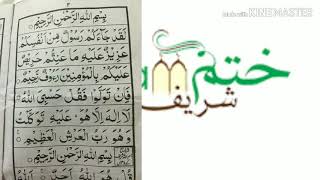 ٢
بِسْمِ اللهِ الرَّحْمٰنِ الرَّحِيْمِ
لَقَدْ جَآءَكُمْ رَسُوْلٌ مِّنْ اَنْفُسِكُمْ
عَزِيْزٌ عَلَيْهِ مَا عَنِتُّمْ حَرِيْصٌ
عَلَيْكُمْ بِالْمُؤْمِنِيْنَ رَءُوْفٌ رَّحِيْمٌ
فَاِنْ تَوَلَّوْا فَقُلْ حَسْبِيَ اللهُ
لَآ اِلٰهَ اِلَّا هُوَ عَلَيْهِ تَوَكَّلْتُ
وَهُوَ رَبُّ الْعَرْشِ الْعَظِيْمِ
بِسْمِ اللهِ الرَّحْمٰنِ الرَّحِيْمِ
قُلْ هُوَ اللهُ اَحَدٌ
Made with KINEMASTER
ختم
شریف